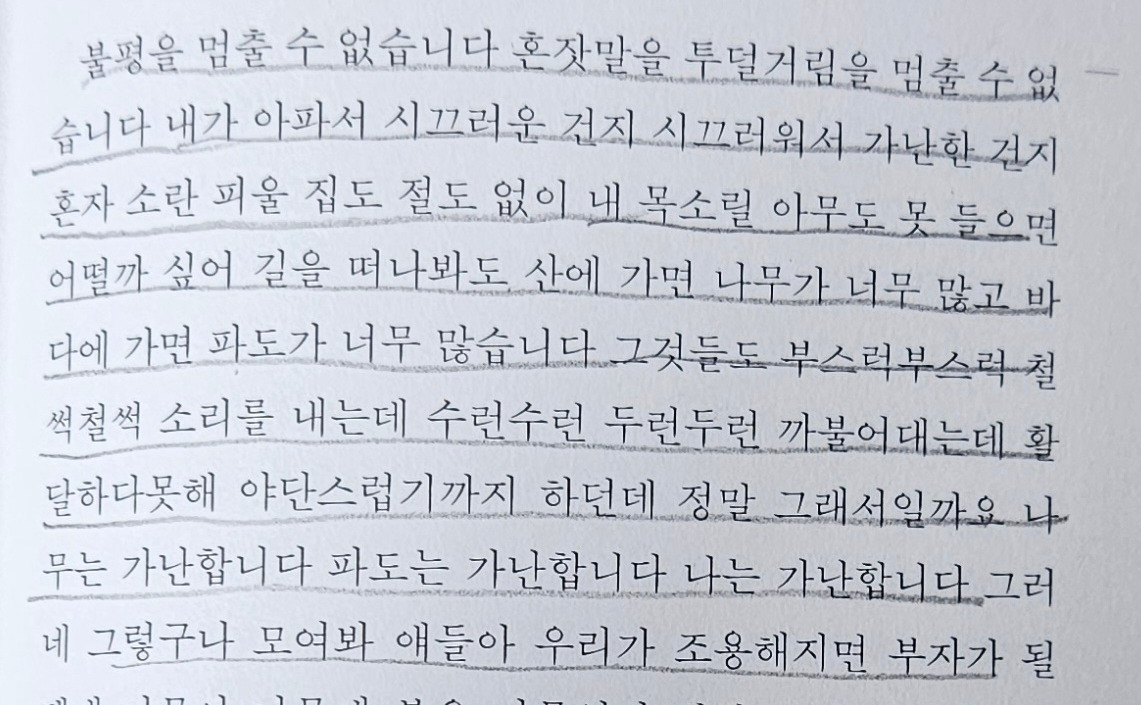 불평을 멈출 수 없습니다 혼잣말을 투덜거림을 멈출 수 없
습니다 내가 아파서 시끄러운 건지 시끄러워서 가난한 건지
혼자 소란 피울 집도 절도 없이 내 목소릴 아무도 못 들으면
어떨까 싶어 길을 떠나봐도 산에 가면 나무가 너무 많고 바
다에 가면 파도가 너무 많습니다 그것들도 부스럭부스럭 철
썩철썩 소리를 내는데 수런수런 두런두런 까불어대는데 활
달하다못해 야단스럽기까지 하던데 정말 그래서일까요 나
무는 가난합니다 파도는 가난합니다 나는 가난합니다 그러
네 그렇구나 모여봐 얘들아 우리가 조용해지면 부자가 될